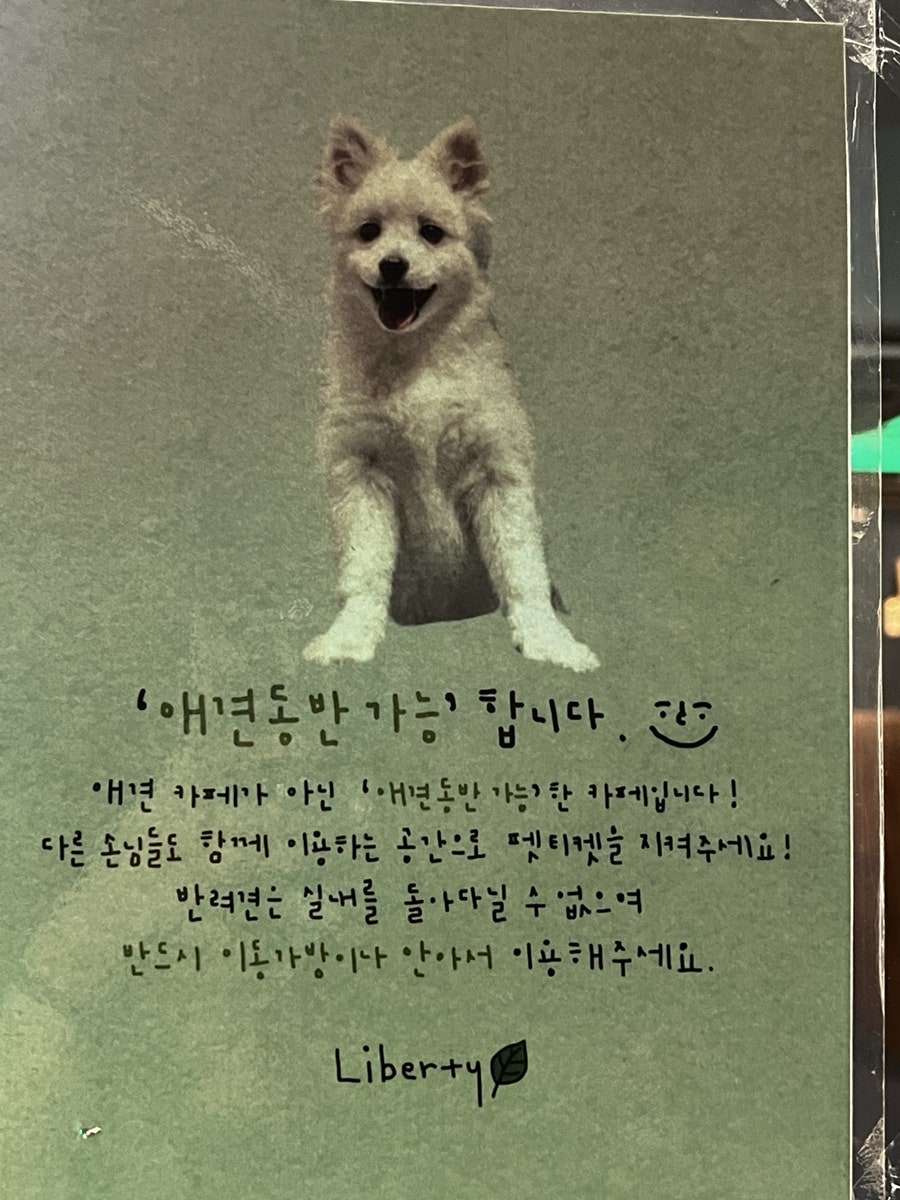 '애견동반 가능' 합니다.
애견 카페가 아닌 '애견동반 가능'한 카페입니다!
다른 손님들도 함께 이용하는 공간으로 펫티켓을 지켜주세요!
반려견은 실내를 돌아다닐 수 없으며
반드시 이동가방이나 안아서 이용해주세요.
Liberty